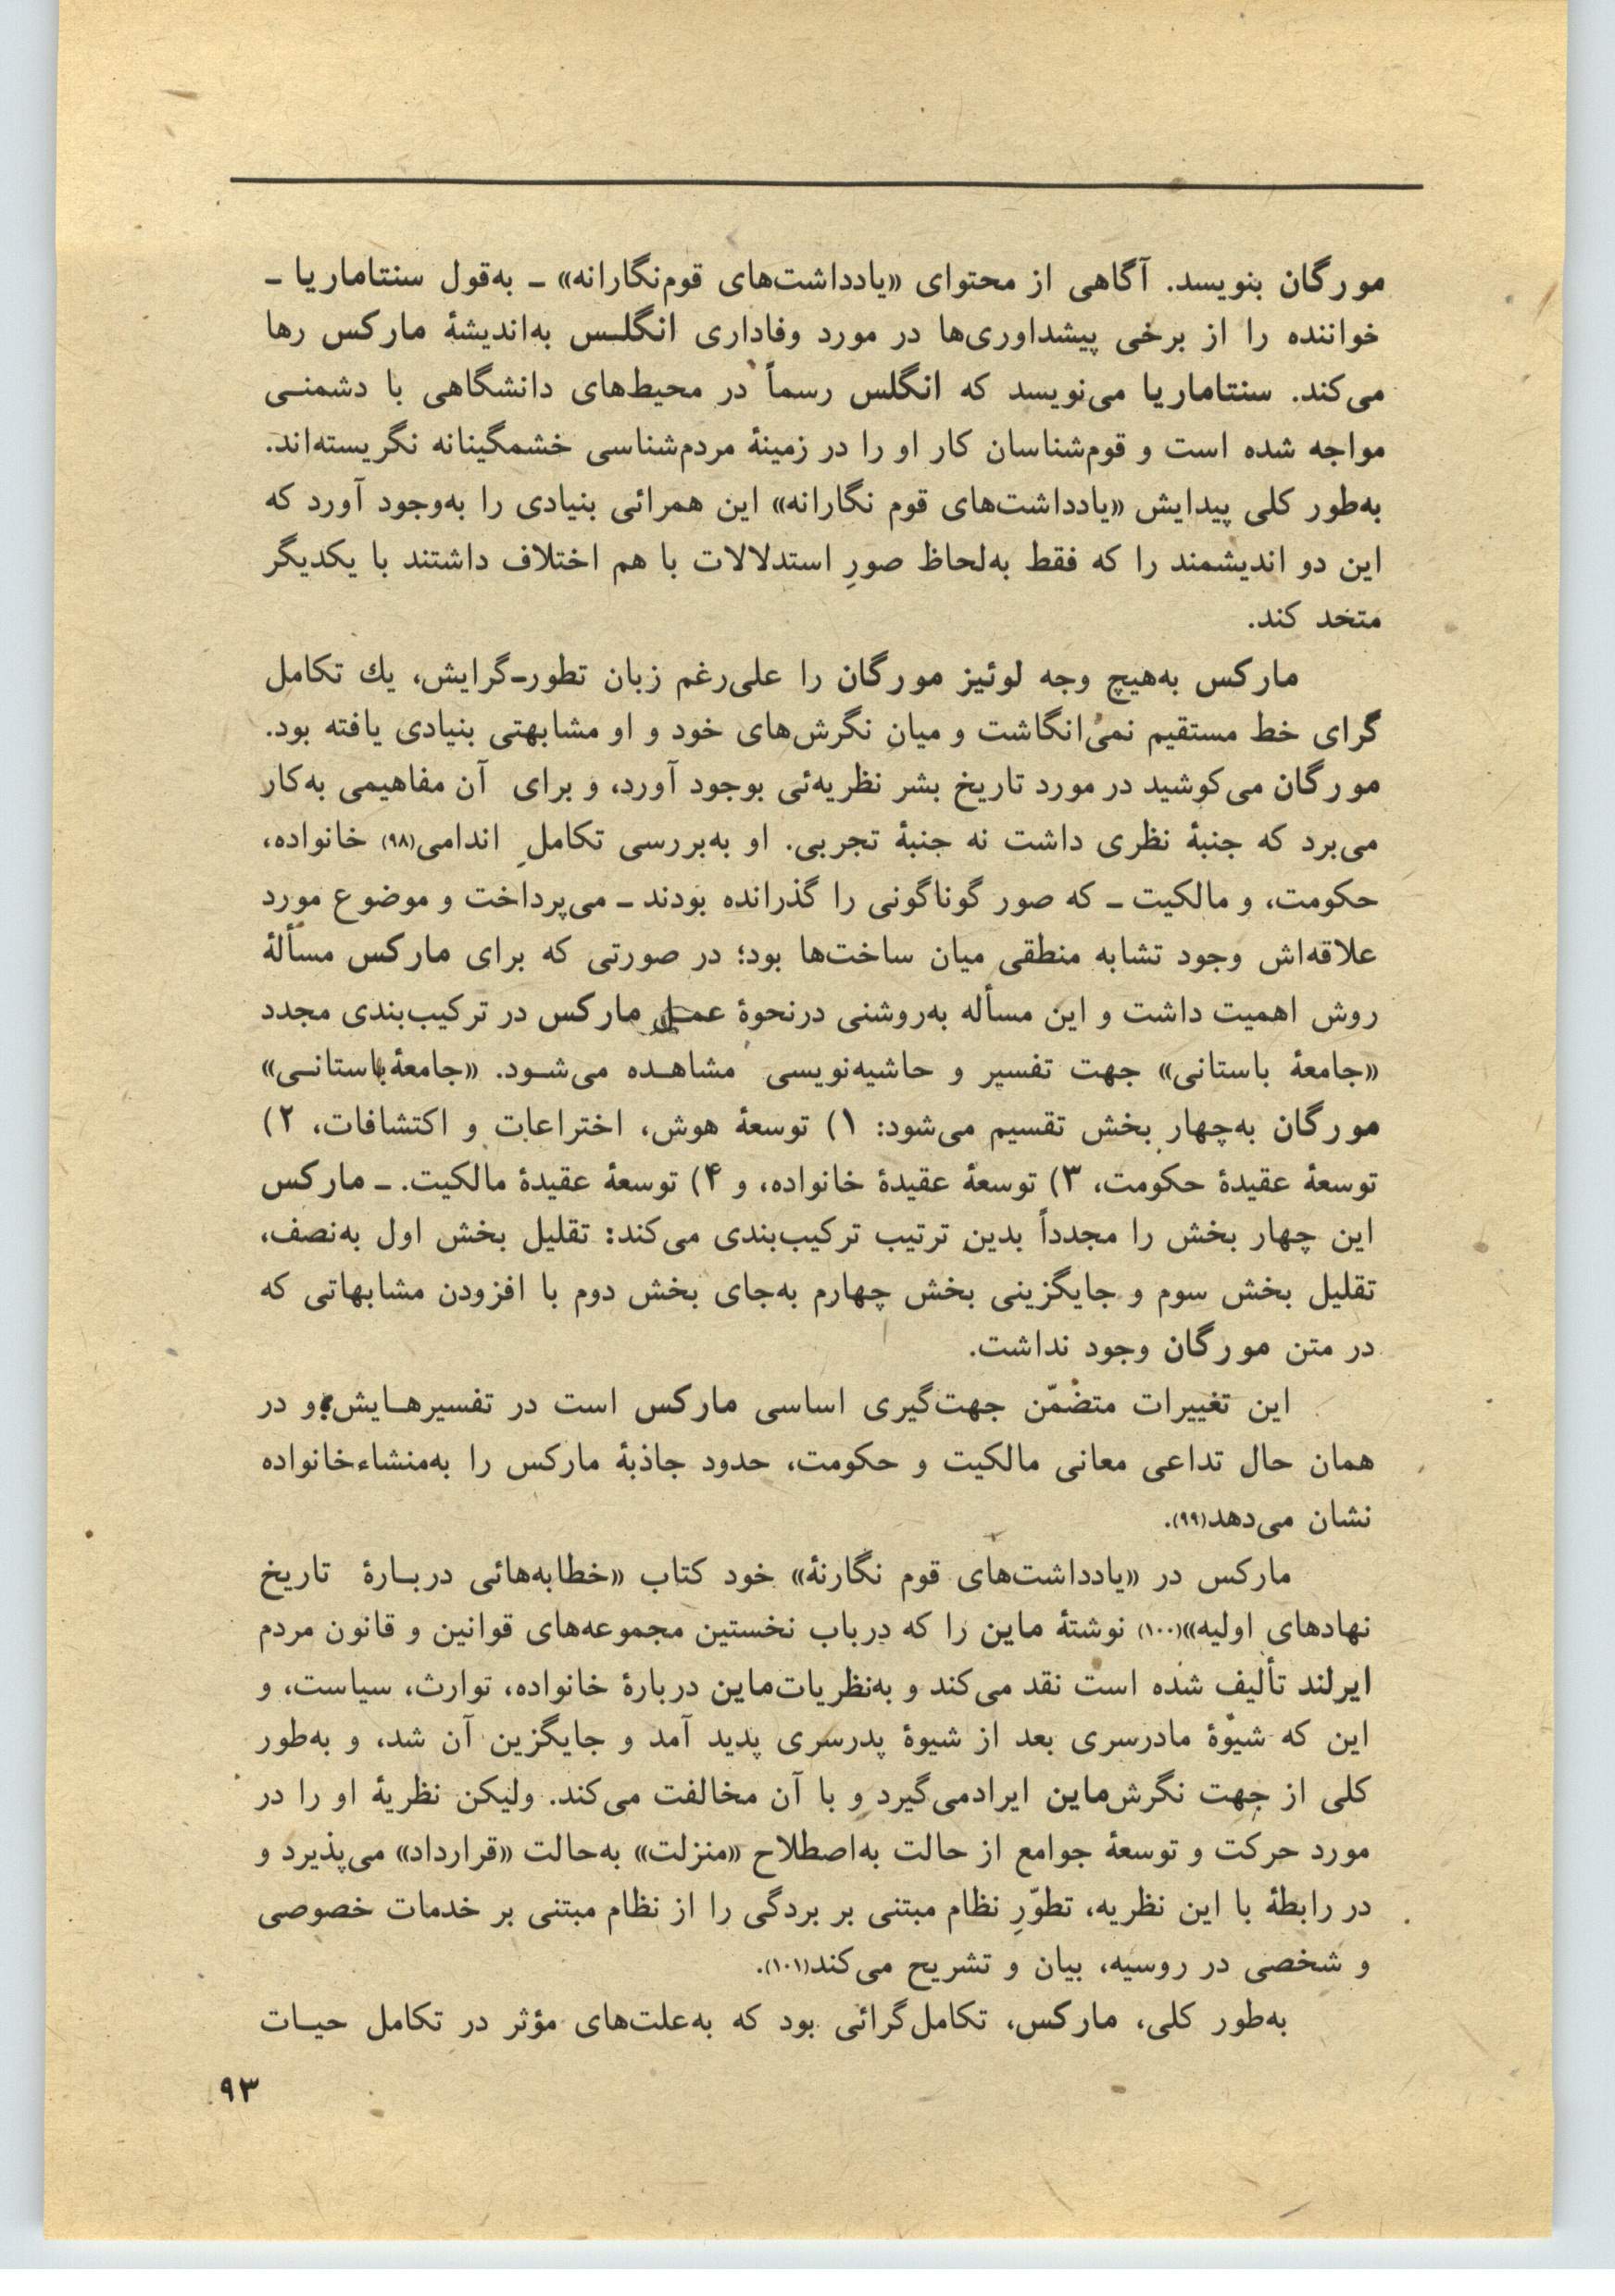 مورگان بنویسد. آگاهی از محتوای «یادداشت‌های قوم‌نگارانه» ـ به‌قول سنتاماریا ـ
خواننده را از برخی پیشداوری‌ها در مورد وفاداری انگلـس به‌اندیشهٔ مارکس رها
می‌کند. سنتاماریا می‌نویسد که انگلس رسماً در محیط‌های دانشگاهی با دشمنـی
مواجه شده است و قوم‌شناسان کار او را در زمینهٔ مردم‌شناسی خشمگینانه نگریسته‌اند.
به‌طور کلی پیدایش «یادداشت‌های قوم نگارانه» این همرائی بنیادی را به‌وجود آورد که
این دو اندیشمند را که فقط به‌لحاظ صورِ استدلالات با هم اختلاف داشتند با یکدیگر
متحد کند.
مارکس به‌هیچ وجه لوئیز مورگان را علی‌رغم زبان تطورـ‌گرایش، یك تکامل
گرای خط مستقیم نمی‌انگاشت و میانِ نگرش‌های خود و او مشابهتی بنیادی یافته بود.
مورگان می‌کوشید در مورد تاریخ بشر نظریه‌ئی بوجود آورد، و برای آن مفاهیمی به‌کار
می‌برد که جنبهٔ نظری داشت نه جنبهٔ تجربی. او به‌بررسی تکاملِ اندامی(۹۸) خانواده،
حکومت، و مالکیت ـ که صور گوناگونی را گذرانده بودند ـ می‌پرداخت و موضوع مورد
علاقه‌اش وجود تشابه منطقی میان ساخت‌ها بود؛ در صورتی که برای مارکس مسألهٔ
روش اهمیت داشت و این مسأله به‌روشنی درنحوهٔ عمـل مارکس در ترکیب‌بندی مجدد
«جامعهٔ باستانی» جهت تفسیر و حاشیه‌نویسی مشاهـده می‌شـود. «جامعهٔ باستانـی»
مورگان به‌چهار بخش تقسیم می‌شود: ۱) توسعهٔ هوش، اختراعات و اکتشافات، ۲)
توسعهٔ عقیدهٔ حکومت، ۳) توسعهٔ عقیدهٔ خانواده، و ۴) توسعهٔ عقیدهٔ مالکیت. ـ مارکس
این چهار بخش را مجدداً بدین ترتیب ترکیب‌بندی می‌کند: تقلیل بخش اول به‌نصف،
تقلیل بخش سوم و جایگزینی بخش چهارم به‌جای بخش دوم با افزودن مشابهاتی که
در متن مورگان وجود نداشت.
این تغییرات متضمّن جهت‌گیری اساسی مارکس است در تفسیرهـایش، و در
همان حال تداعی معانی مالکیت و حکومت، حدود جاذبهٔ مارکس را به‌منشاءخانواده
نشان می‌دهد(۹۹).
مارکس در «یادداشت‌های قوم نگارنهٔ» خود کتاب «خطابه‌هائی دربـارهٔ تاریخ
نهادهای اولیه»(۱۰۰) نوشتهٔ ماین را که درباب نخستین مجموعه‌های قوانین و قانون مردم
ایرلند تألیف شده است نقد می‌کند و به‌نظریات‌ماین دربارهٔ خانواده، توارث، سیاست، و
این که شیوهٔ مادرسری بعد از شیوهٔ پدرسری پدید آمد و جایگزین آن شد، و به‌طور
کلی از جهت نگرش‌ماین ایرادمی‌گیرد و با آن مخالفت می‌کند. ولیکن نظریهٔ او را در
مورد حرکت و توسعهٔ جوامع از حالت به‌اصطلاح «منزلت» به‌حالت «قرارداد» می‌پذیرد و
در رابطهٔ با این نظریه، تطوّرِ نظام مبتنی بر بردگی را از نظام مبتنی بر خدمات خصوصی
و شخصی در روسیه، بیان و تشریح می‌کند(۱۰۱).
به‌طور کلی، مارکس، تکامل‌گرائی بود که به‌علت‌های مؤثر در تکامل حیـات
۹۳